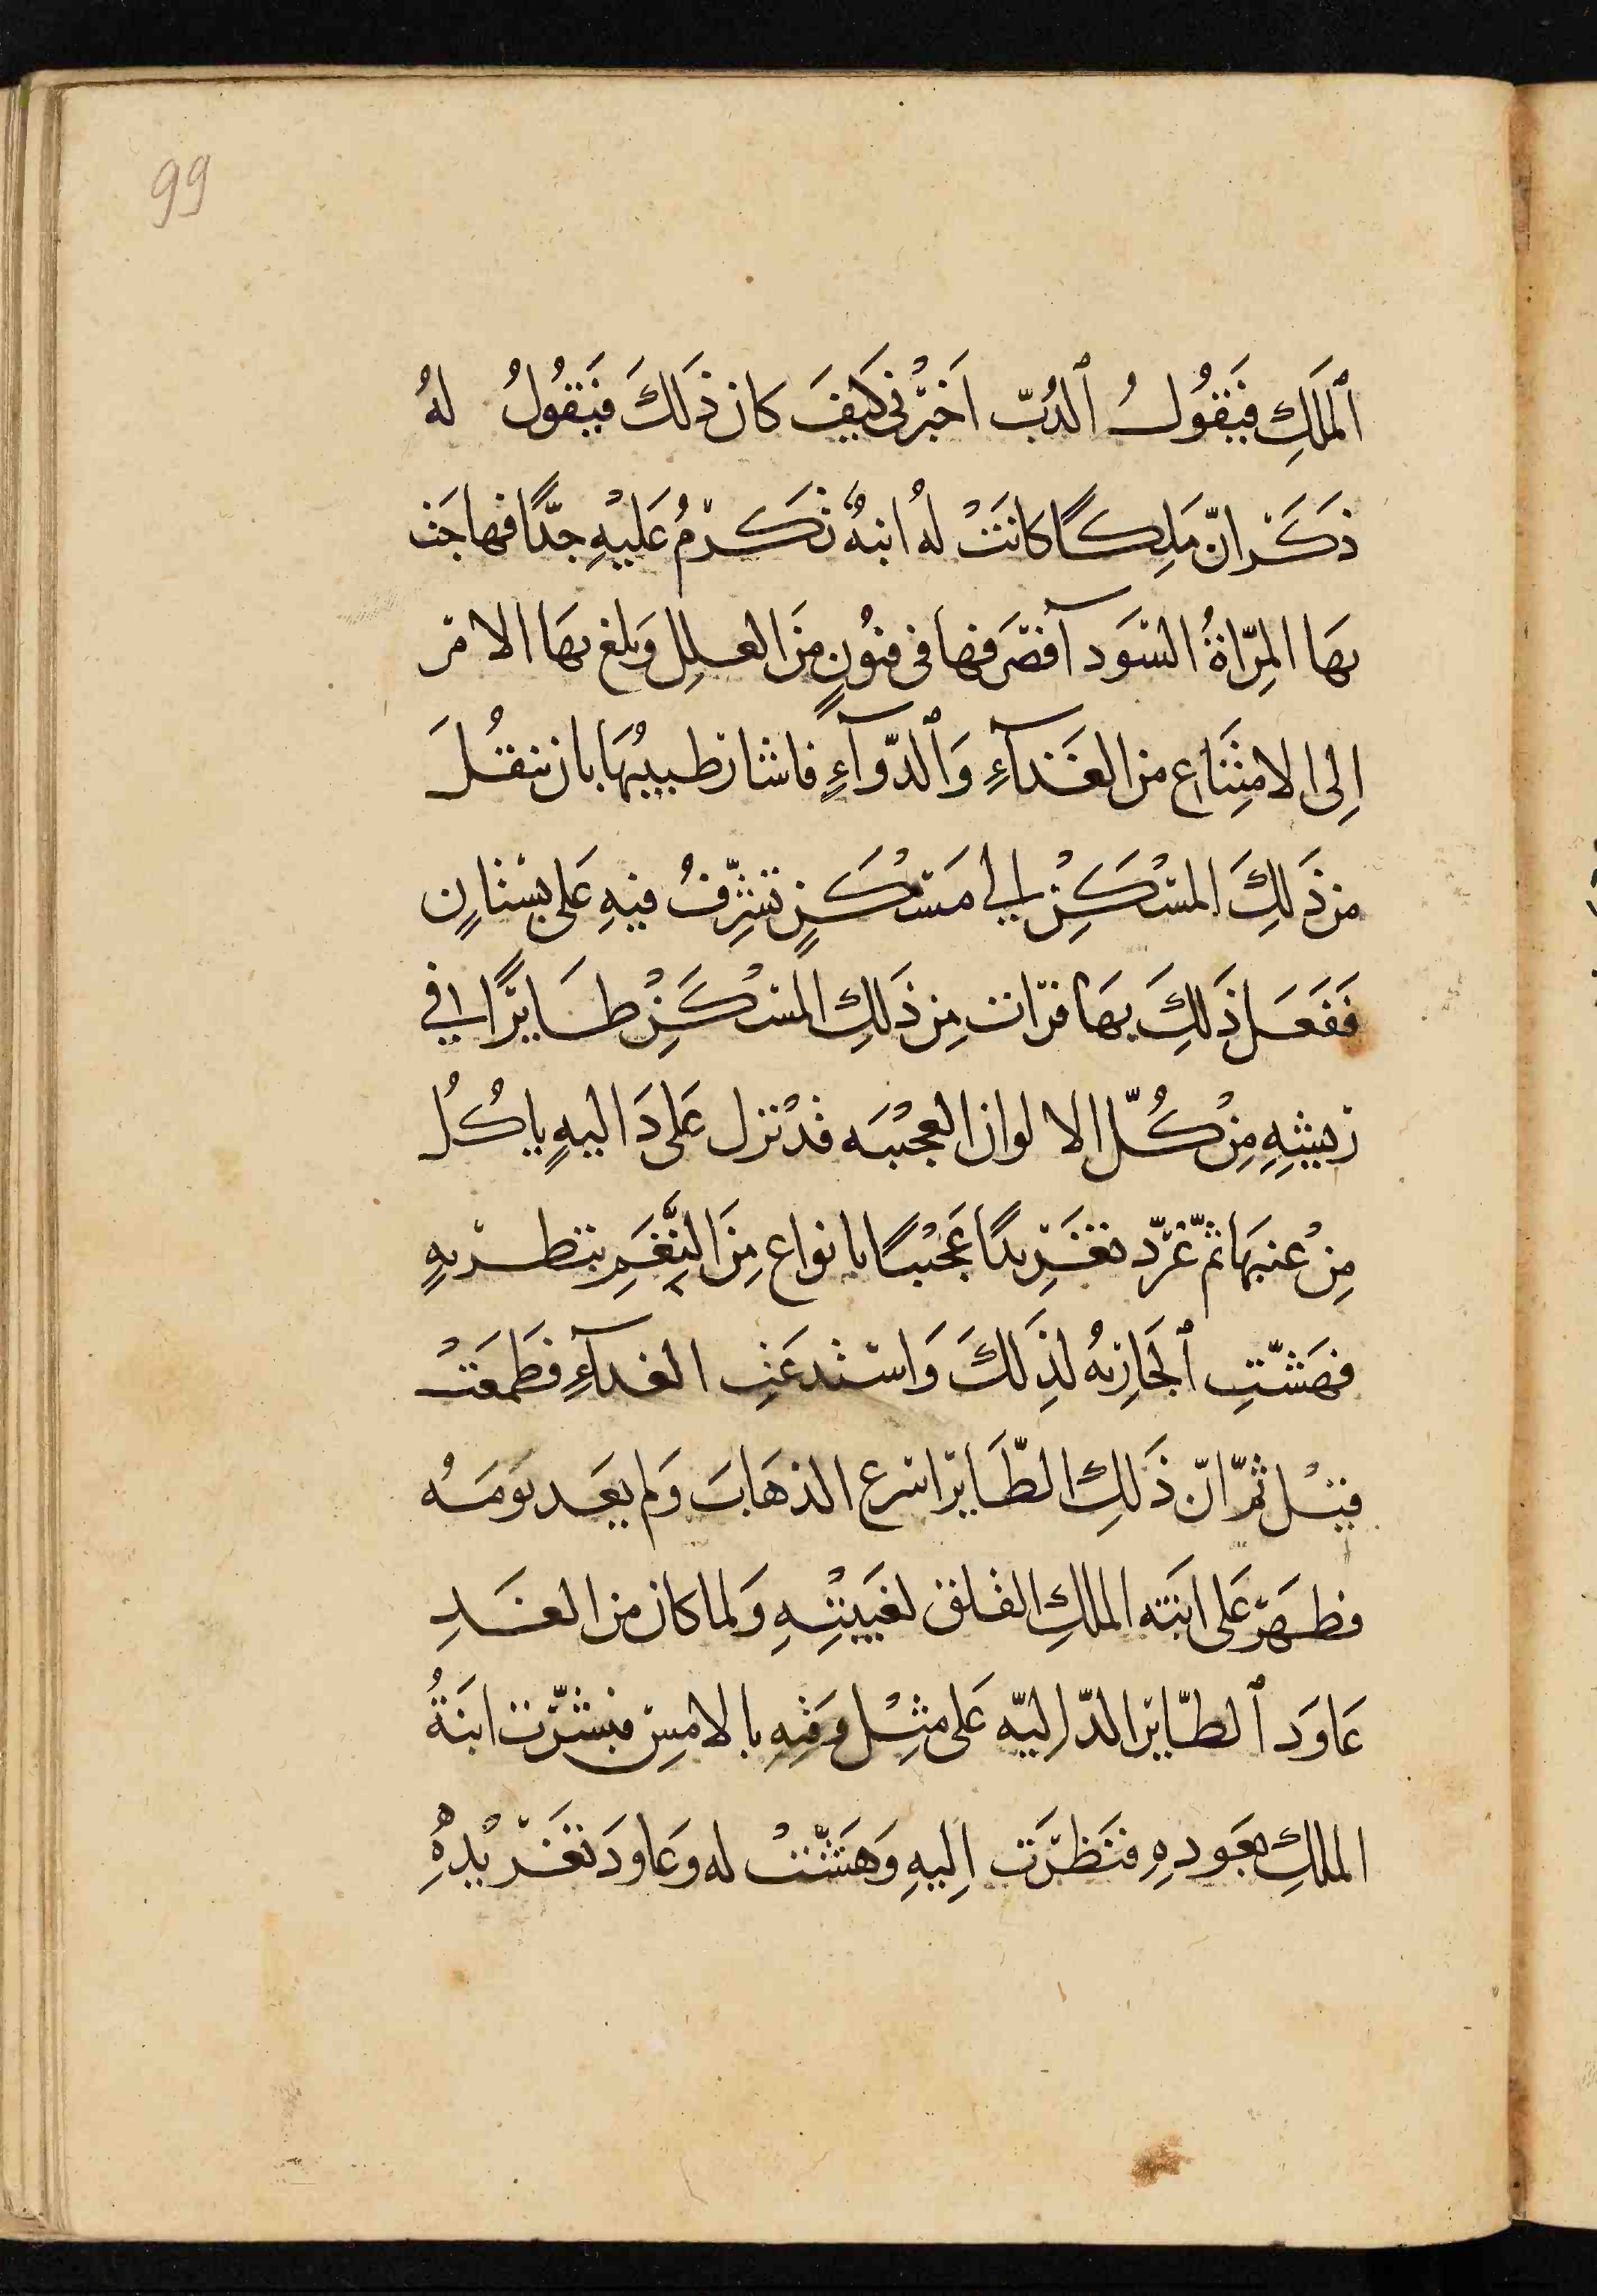 99
ٱلمَلَكِ فَيَقُولُ ٱلدُبّ اَخْبِرْنى كَيفَ كان ذَلكَ فَيَقُولُ لهُ
ذَكَرَ انّ مَلِكًا كانَتْ لهُ ابنهٌ تَكرمُ عَليْهِ جدًّا فهاجَت
بهَا المِرّاةُ السَودآ فصَرفها فى فنُونٍ مِنَ العللِ وَبلغ بهَا الامر
اِلى الامتِنَاع من الغَذآءِ وَٱلدّوآءٍ فاشار طبيبُهَا بان تنقُلَ
من ذَلِكَ المسْكَنِ الى مَسْكَنٍ تشرِفُ فيهِ عَلى بسْتانٍ
فَفَعَل ذَلِكَ بهَا فرات مِن ذَلكِ المسْكَنِ طَايرًا فى
زيشِهِ مِنْ كُلّ الالوان العجْيبَه قدْ نزل عَلى دَاليهٍ ياكُلُ
مِنْ عنبهَا ثمّ غرّد تغَرِيدًا عَجْيبًا بانواع مِنَ النِّغَمِ بتطريهٍ
فهَشّتِ ٱلجَاريهُ لذَلكَ وَاستدعَتِ الغدآءِ فطمَعَتْ
فيْل ثمّ انّ ذَلكِ الطّاير اسرع الذهَابَ وَلم يعَد يَومَهُ
فظهَرَ عَلى ابنَته الملكِ القلق لغَيبْتِهِ وَلما كان من الغَدِ
عَاوَد ٱلطّاير الدّاليّه عَلى مثِلْ وَقتِهِ بالامسِ فبشرّت ابنَةُ
الملكِ بعَودهِ فنَظرَت اِليهِ وَهَشّتْ له وَعاودَ تغَريْدهُ